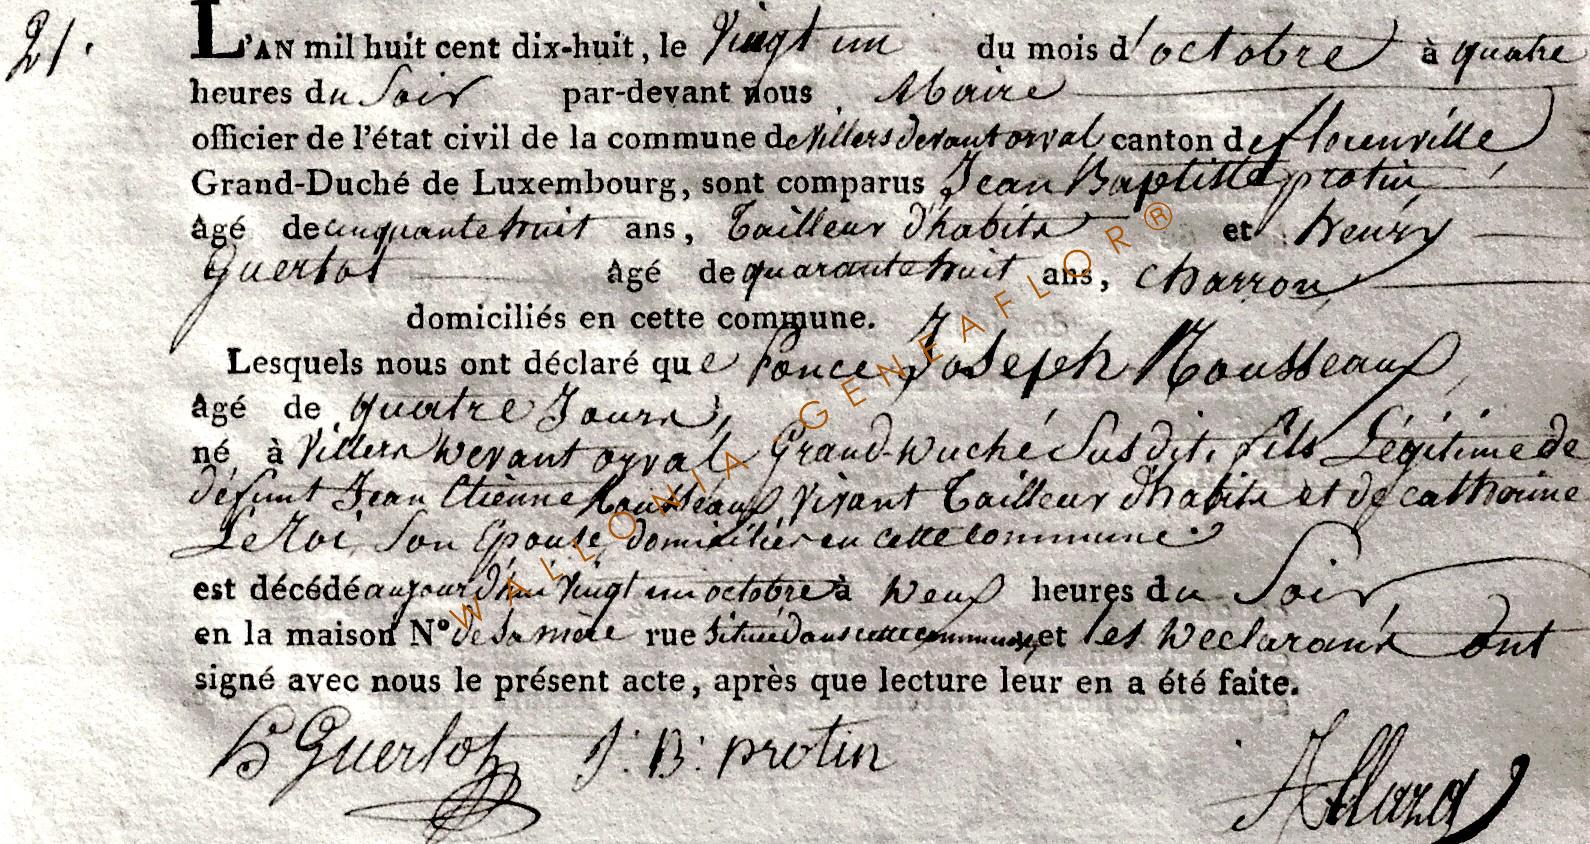 21.
L'AN mil huit cent dix-huit, le vingt un du mois d'octobre à quatre
heures du Soir par-devant nous Maire
officier de l'état civil de la commune de villers devant orval canton de florenville
Grand-Duché de Luxembourg, sont comparus Jean Baptiste protin
âgé de cinquante huit ans, Tailleur d'habits et henry
Guerlot âgé de quarante huit ans, charron
domiciliés en cette commune.
Lesquels nous ont déclaré que Ponce Joseph Rousseaux
âgé de quatre Jours,
né à Villers Devant orval Grand-Duché Susdit, fils Légitime de
défunt Jean Etienne Rousseaux Vivant Tailleur d'habits et de catherine
Le Roi, Son Epouse, domiciliés en cette commune
est décédé aujourd'hui vingt un octobre à Deux heures du Soir,
en la maison N° de Sa mère rue Située dans cette commune, et les Declarans ont
signé avec nous le présent acte, après que lecture leur en a été faite.
h Guerlot J: B: protin
WALLONIA-GENEAFLOR®